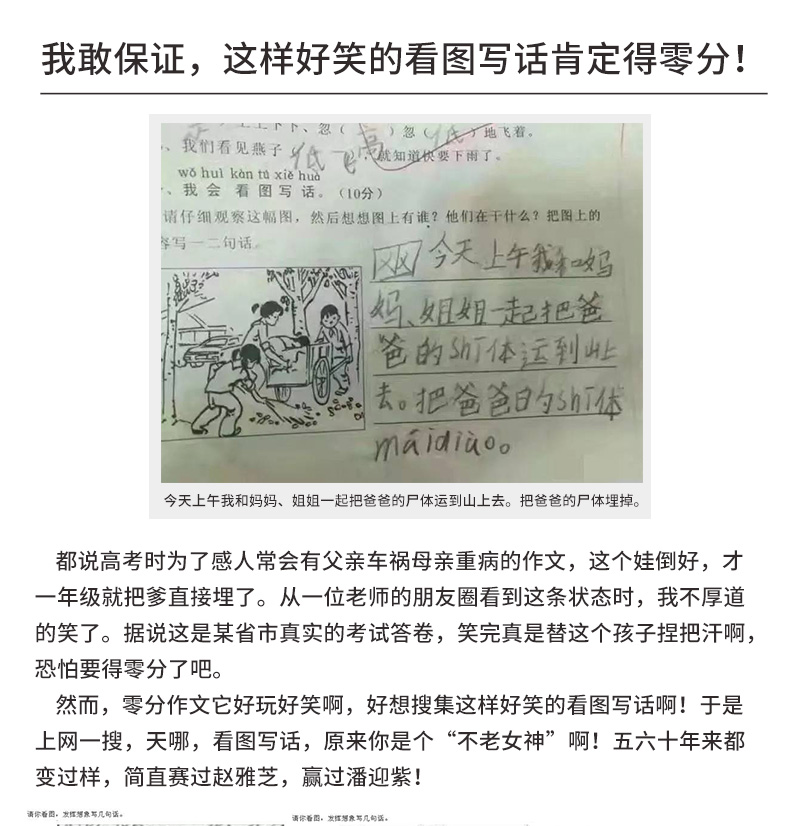 我敢保证，这样好笑的看图写话肯定得零分！
上上下下、忽（高）忽（低）地飞着。
、我们看见燕子低飞，就知道快要下雨了。
wǒ huì kàn tú xiě huà
、我 会 看 图 写 话 。（10分）
请仔细观察这幅图，然后想想图上有谁？他们在干什么？把图上的
容写一二句话。
今天上午我和妈
妈、姐姐一起把爸
爸的shī体运到山上
去。把爸爸的shī体
máidiào。
今天上午我和妈妈、姐姐一起把爸爸的尸体运到山上去。把爸爸的尸体埋掉。
都说高考时为了感人常会有父亲车祸母亲重病的作文，这个娃倒好，才
一年级就把爹直接埋了。从一位老师的朋友圈看到这条状态时，我不厚道
的笑了。据说这是某省市真实的考试答卷，笑完真是替这个孩子捏把汗啊，
恐怕要得零分了吧。
然而，零分作文它好玩好笑啊，好想搜集这样好笑的看图写话啊！于是
上网一搜，天哪，看图写话，原来你是个“不老女神”啊！五六十年来都
变过样，简直赛过赵雅芝，赢过潘迎紫！
请你看图，发挥想象写几句话。
请你看图，发挥想象写几句话。